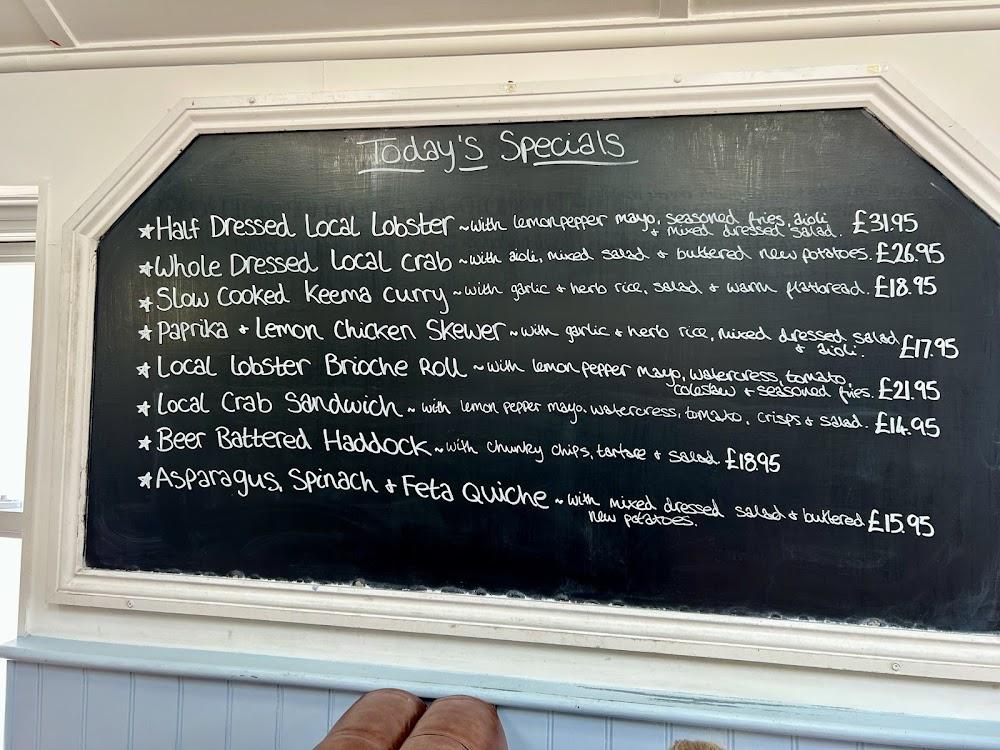 Today's Specials
★Half Dressed Local Lobster ~with lemon pepper mayo, seasoned fries, aioli £31.95
+ mixed dressed salad.
★Whole Dressed Local Crab ~with aioli, mixed salad + buttered new potatoes. £26.95
★Slow Cooked Keema Curry ~with garlic + herb rice, salad + warm flatbread. £18.95
★Paprika + Lemon Chicken Skewer ~with garlic + herb rice, mixed dressed salad £17.95
+ aioli.
★Local Lobster Brioche Roll ~with lemon pepper mayo, watercress, tomato,
coleslaw + seasoned fries. £21.95
★Local Crab Sandwich ~with lemon pepper mayo, watercress, tomato, crisps + salad. £14.95
★Beer Battered Haddock ~with chunky chips, tartare + salad £18.95
★Asparagus, Spinach + Feta Quiche ~with mixed dressed salad + buttered £15.95
new potatoes.